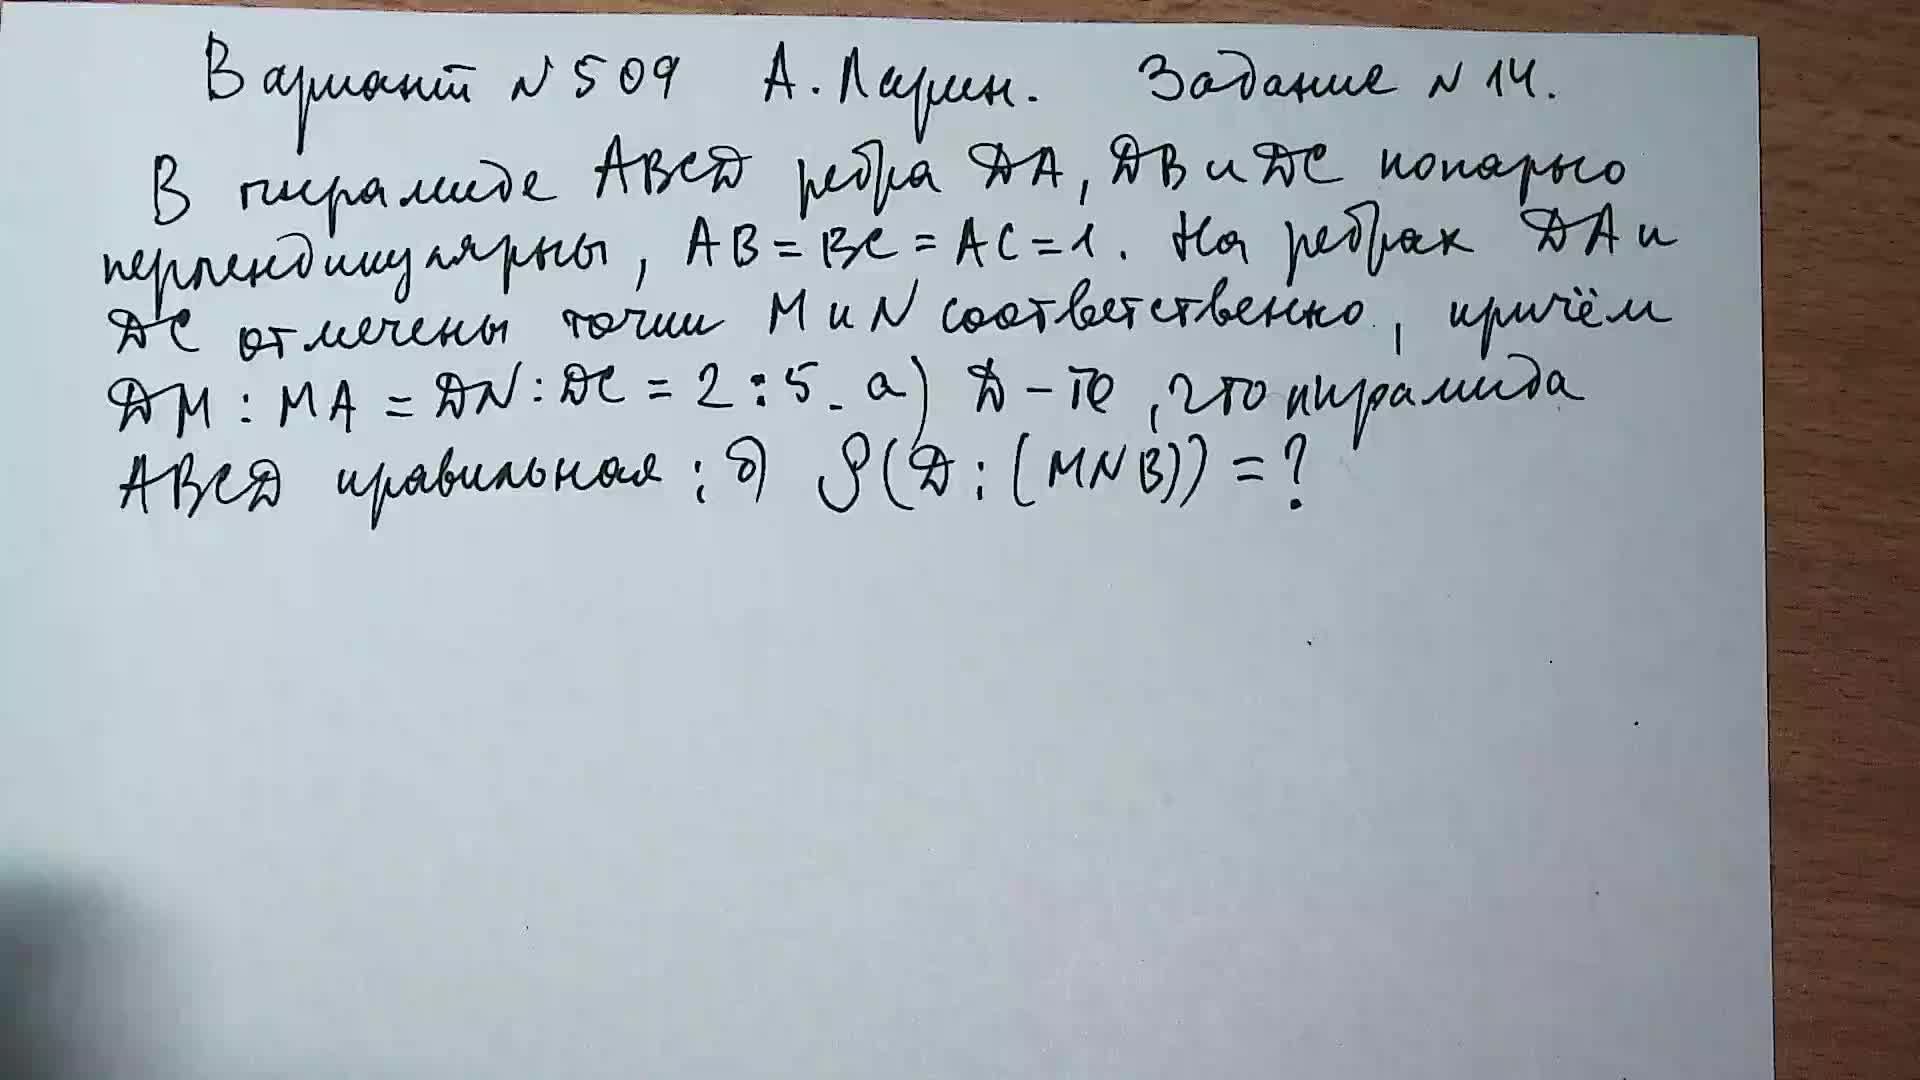 Вариант N 509 А. Ларин. Задание N 14.
В пирамиде ABCD ребра DA, DB и DC попарно
перпендикулярны, AB = BC = AC = 1. На ребрах DA и
DC отмечены точки M и N соответственно, причём
DM : MA = DN : DC = 2 : 5. а) Д-те, что пирамида
ABCD правильная; б) ρ(D; (MNB)) = ?